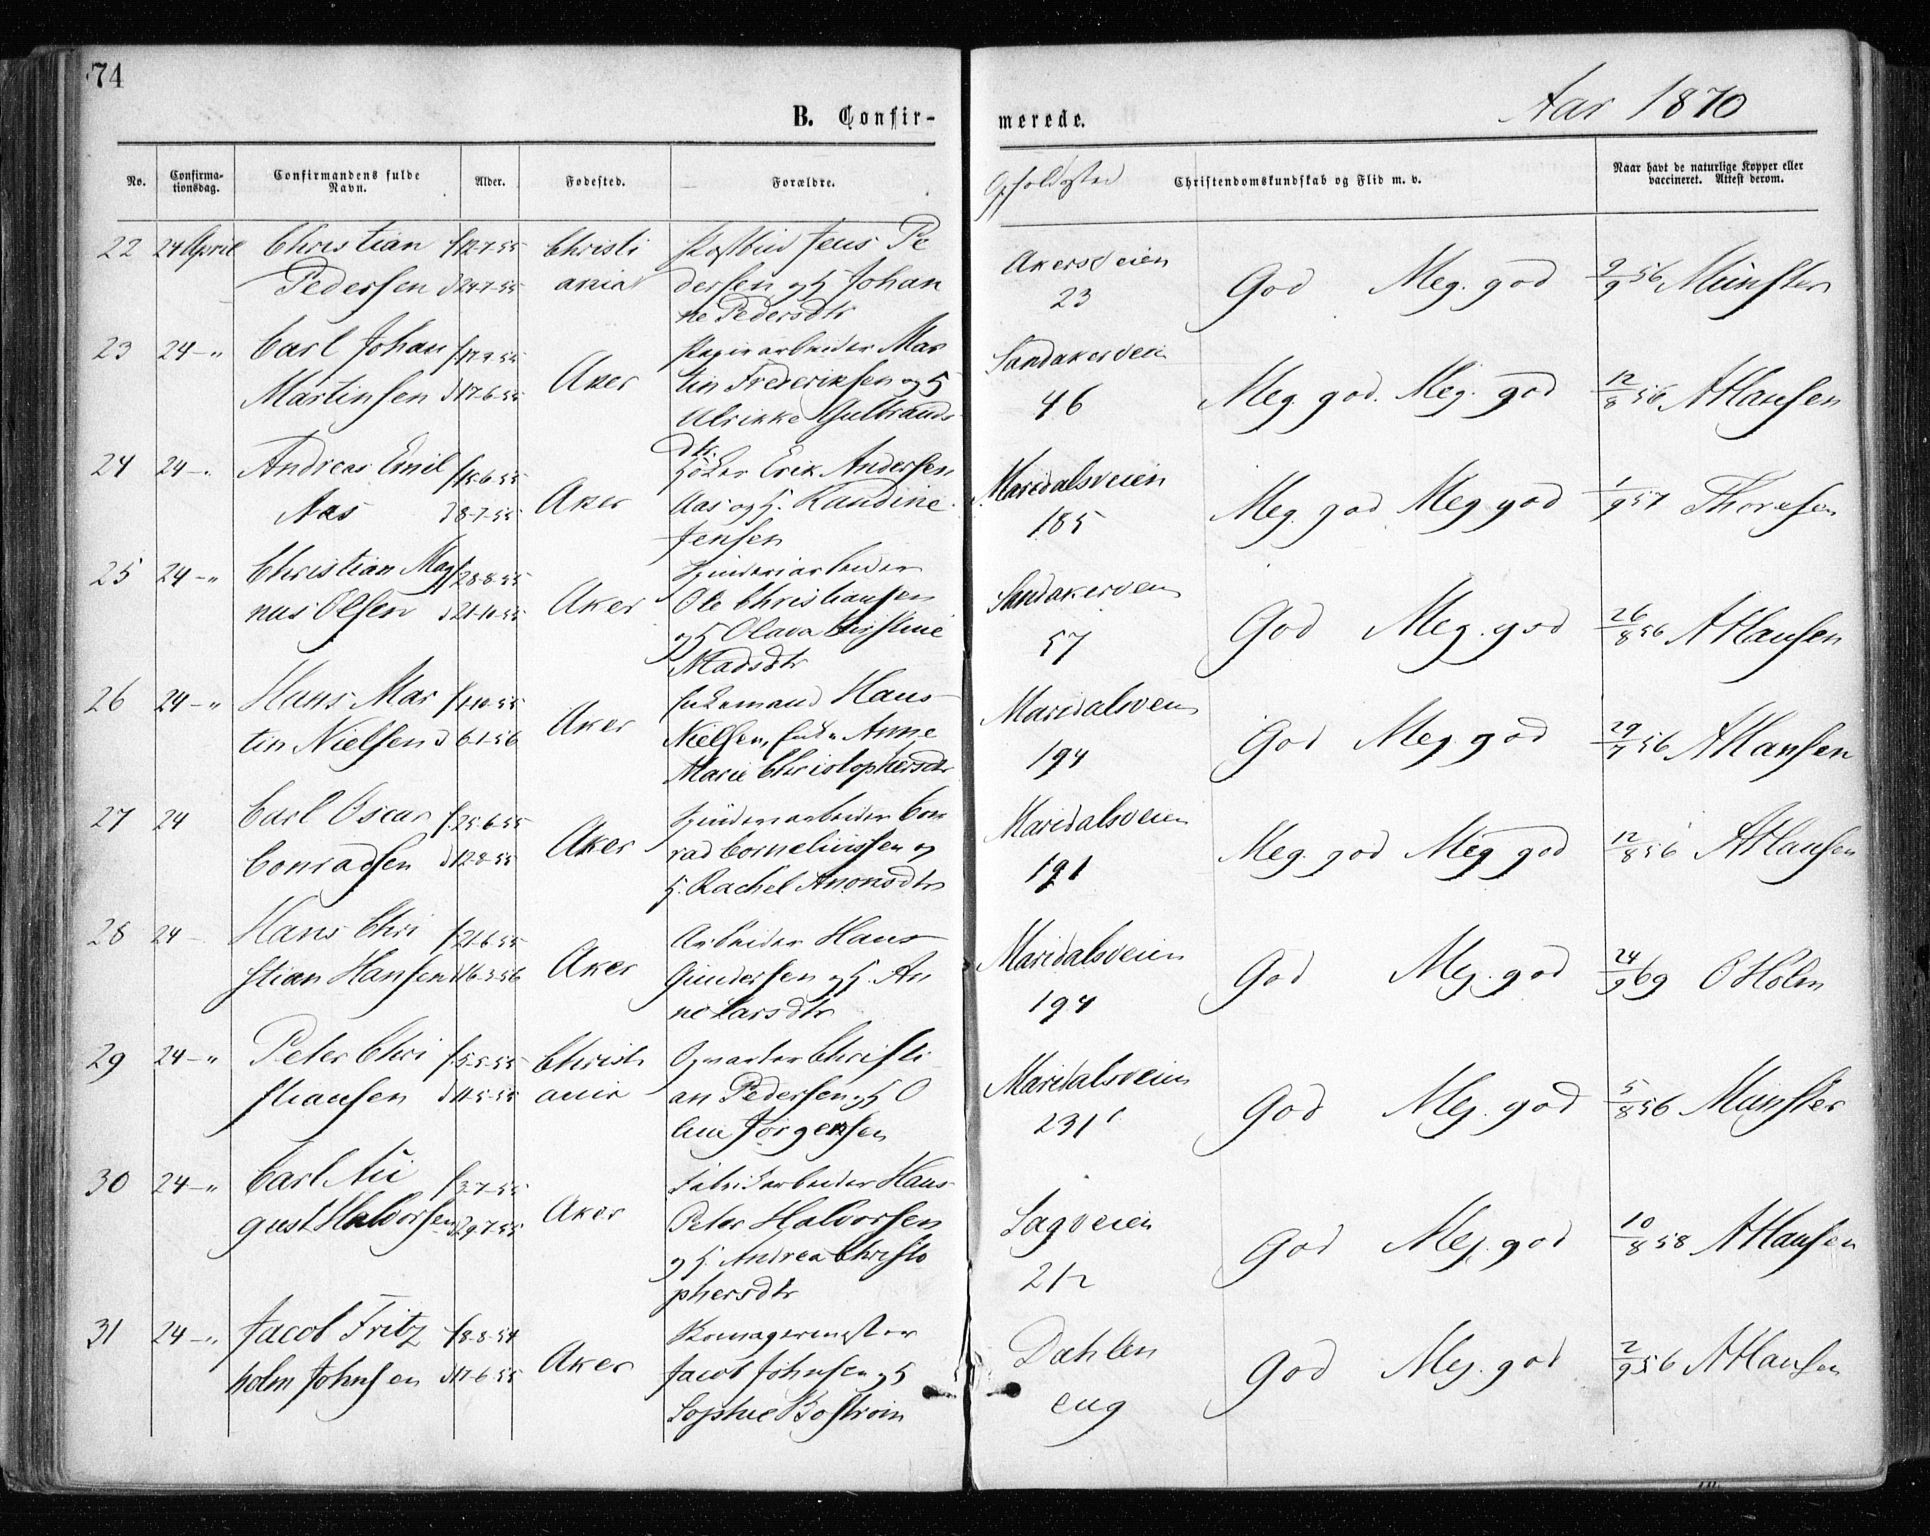 74
B. Confir-
merede.
Aar 1870
No.
Confirma-
tionsdag.
Confirmandens fulde
Navn.
Alder.
Fødested.
Forældre.
Opholdsted
Christendomskundskab og Flid m. v.
Naar havt de naturlige Kopper eller
vaccineret. Attest derom.
22 24 April Christian f 12-7-55 Christi Jens Pe
Pedersen d 24-7-55 ania dersen og H Johan
ne Pedersdtr
Akersveien
23
God Meg. god 9/9 56 Münster
23 24 -„ Carl Johan Mar
Martinsen d 17-6-55 Aker tin Frederiksen og H
Ulrikke Gulbrands
dtr.
Sandakerveien
46
Meg. god. Meg. god 12/8 56 AHansen
24 24 -. Andreas Emil f 15-6-55 Erik Andersen
Aas d 8-7-55 Aker Aas og H. Randine
Jensen
Maridalsveien
185
Meg. god Meg. god 1/9 57 Thoresen
25 24 -„ Christian Mag f 28-8-55 Spinderiarbeider
nus Olsen d 21-10-55 Aker Ole Christiansen
og H Olava Kirstine
Madsdtr
Sandakerveien
57
God Meg. god 26/8 56 AHansen
26 24 -„ Hans Mar f 1-10-55 Enkemand Hans
tin Nielsen d 6-1-56 Aker Nielsen, Anne
Marie Christophersdtr
Maridalsveien
194
God Meg god 29/7 56 AHansen
27 24 Carl Oscar f. 25-6-55 Spinderiarbeider Con
Conradsen d 12-8-55 Aker rad Corneliussen og
H. Rachel Amonsdtr
Maridalsveien
191
Meg. god Meg god 12/8 56 AHansen
28 24 - Hans Chri f. 21-6-55 Arbeider Hans
stian Hansen d 16-3-56 Aker Gundersen og H. An
ne Larsdtr
Maridalsveien
194
God Meg. god 24/9 69 O Holm
29 24 -„ Peter Chri f. 5-5-55 Christi Opvarter Christi
stiansen d 11-5-55 ania an Pedersen og H O
line Jørgensen
Maridalsveien
231
God Meg. god 5/8 56 Münster
30 24 -„ Carl Au f 3-7-55 Fabrikarbeider Hans
gust Halvorsen d 29-7-55 Aker Peter Halvorsen
og H. Andrea Christo
phersdtr
Sagveien
21
God Meg. god 10/8 58 AHansen
31 24 -„ Jacob Fritz f 8-8-54
holm Johnsen d 17-6-55 Aker Jacob Johnsen og H
Sophie Boström
Dahlen
eng
God Meg. god 2/9 56 AHansen